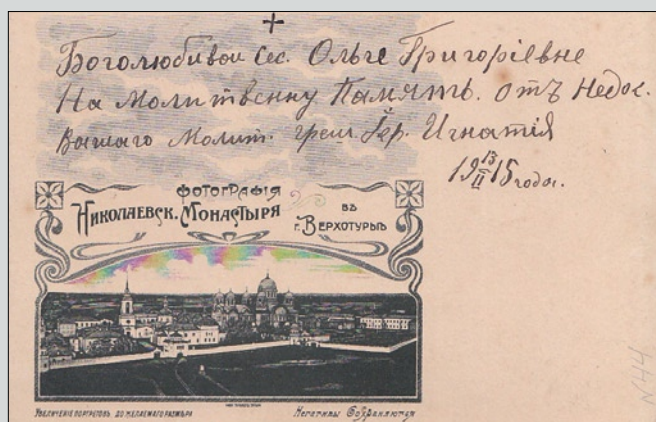 +
Боголюбивой Сес. Ольге Григоріевне
На Молитвенну Память. отъ Недос.
вашаго Молит. греш. Іер. Игнатія
19 13/II 15 года.
ФОТОГРАФІЯ
НИКОЛАЕВСК. МОНАСТЫРЯ
ВЪ
Г. ВЕРХОТУРЬѢ
УВЕЛИЧЕНІЕ ПОРТРЕТОВЪ ДО ЖЕЛАЕМАГО РАЗМѢРА
Негативы Сохраняются
N44